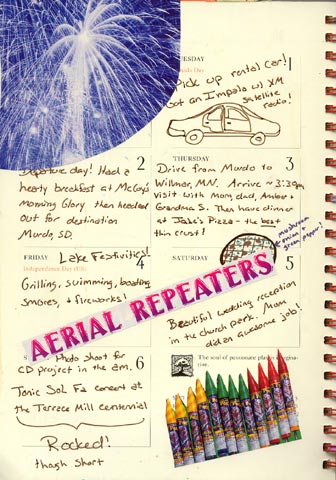 TUESDAY
Pick up rental car!
Got an Impala w/ XM
satellite
radio!
2
Departure day! Had a
hearty breakfast at McCoy's
Morning Glory then headed
out for destination
Murdo, SD.
THURSDAY
3
Drive from Murdo to
Willmar, MN. Arrive ~ 3:30pm
visit with Mom, dad, Amber +
Grandma S. Then have dinner
at Jake's Pizza - the best
thin crust!
mushroom
onion +
green pepper!
FRIDAY
4
Independence Day (US)
Lake Festivities!
Grilling, swimming, boating
smores, + fireworks!
SATURDAY
5
Beautiful wedding reception
in the church park. Mom
did an awesome job!
AERIAL REPEATERS
6
Photo shoot for
CD project in the am.
Tonic Sol Fa concert at
the Terrace Mill centennial
Rocked!
though short
The soul of passionate play is imagina-
tion.